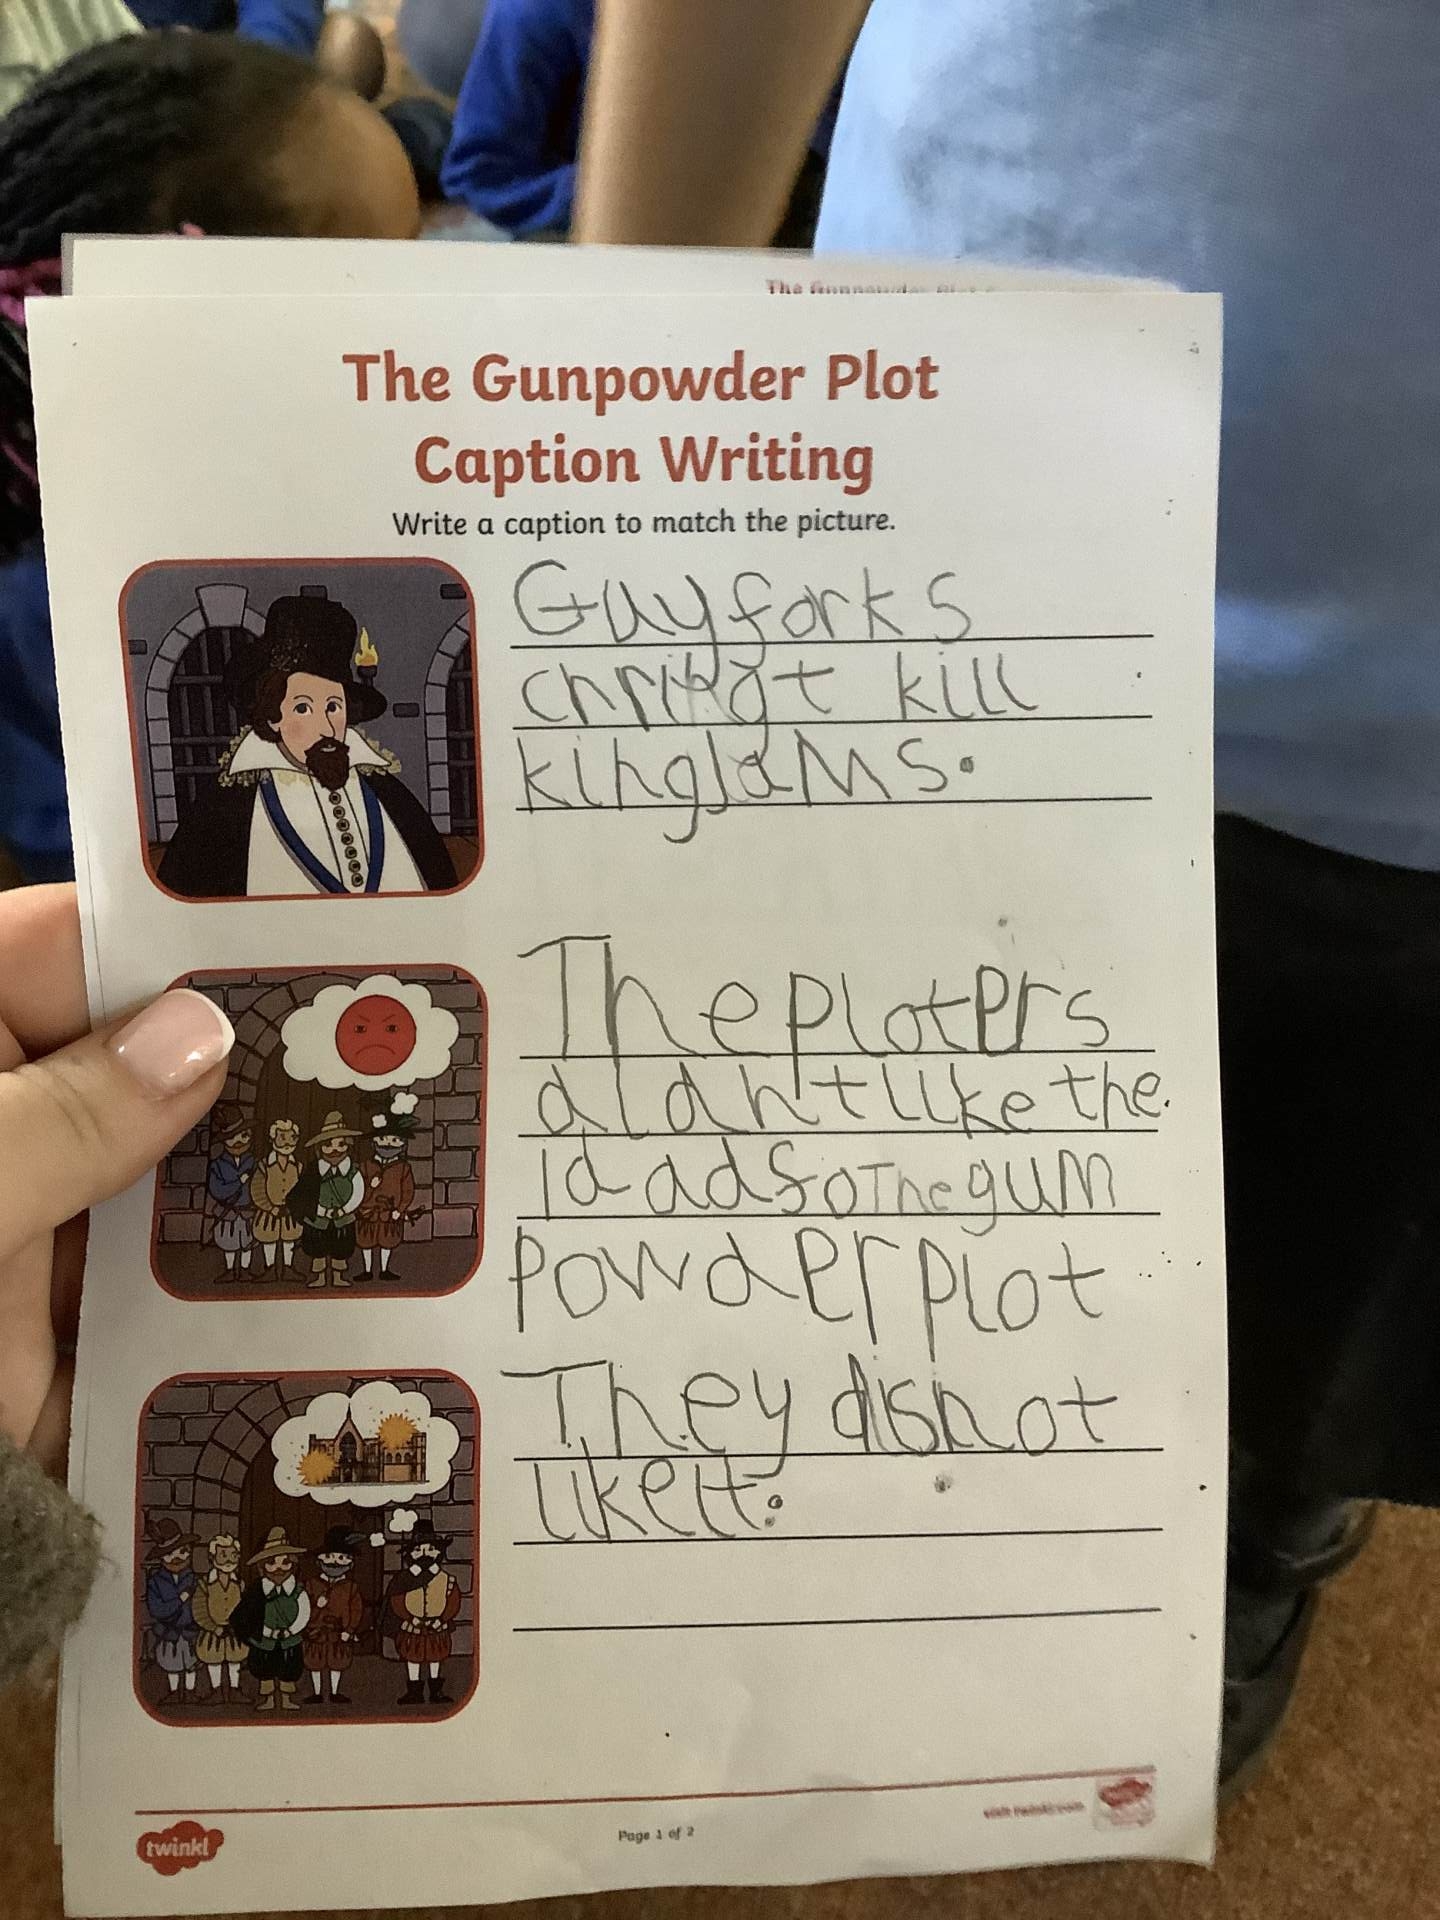 The Gunpowder Plot
The Gunpowder Plot
Caption Writing
Write a caption to match the picture.
Guy forks
kill
kingjams.
The ploters
didn't like the
idads fo The gum
Powder plot
They dishot
like it.
twinkl
Page 1 of 2
visit twinkl.com